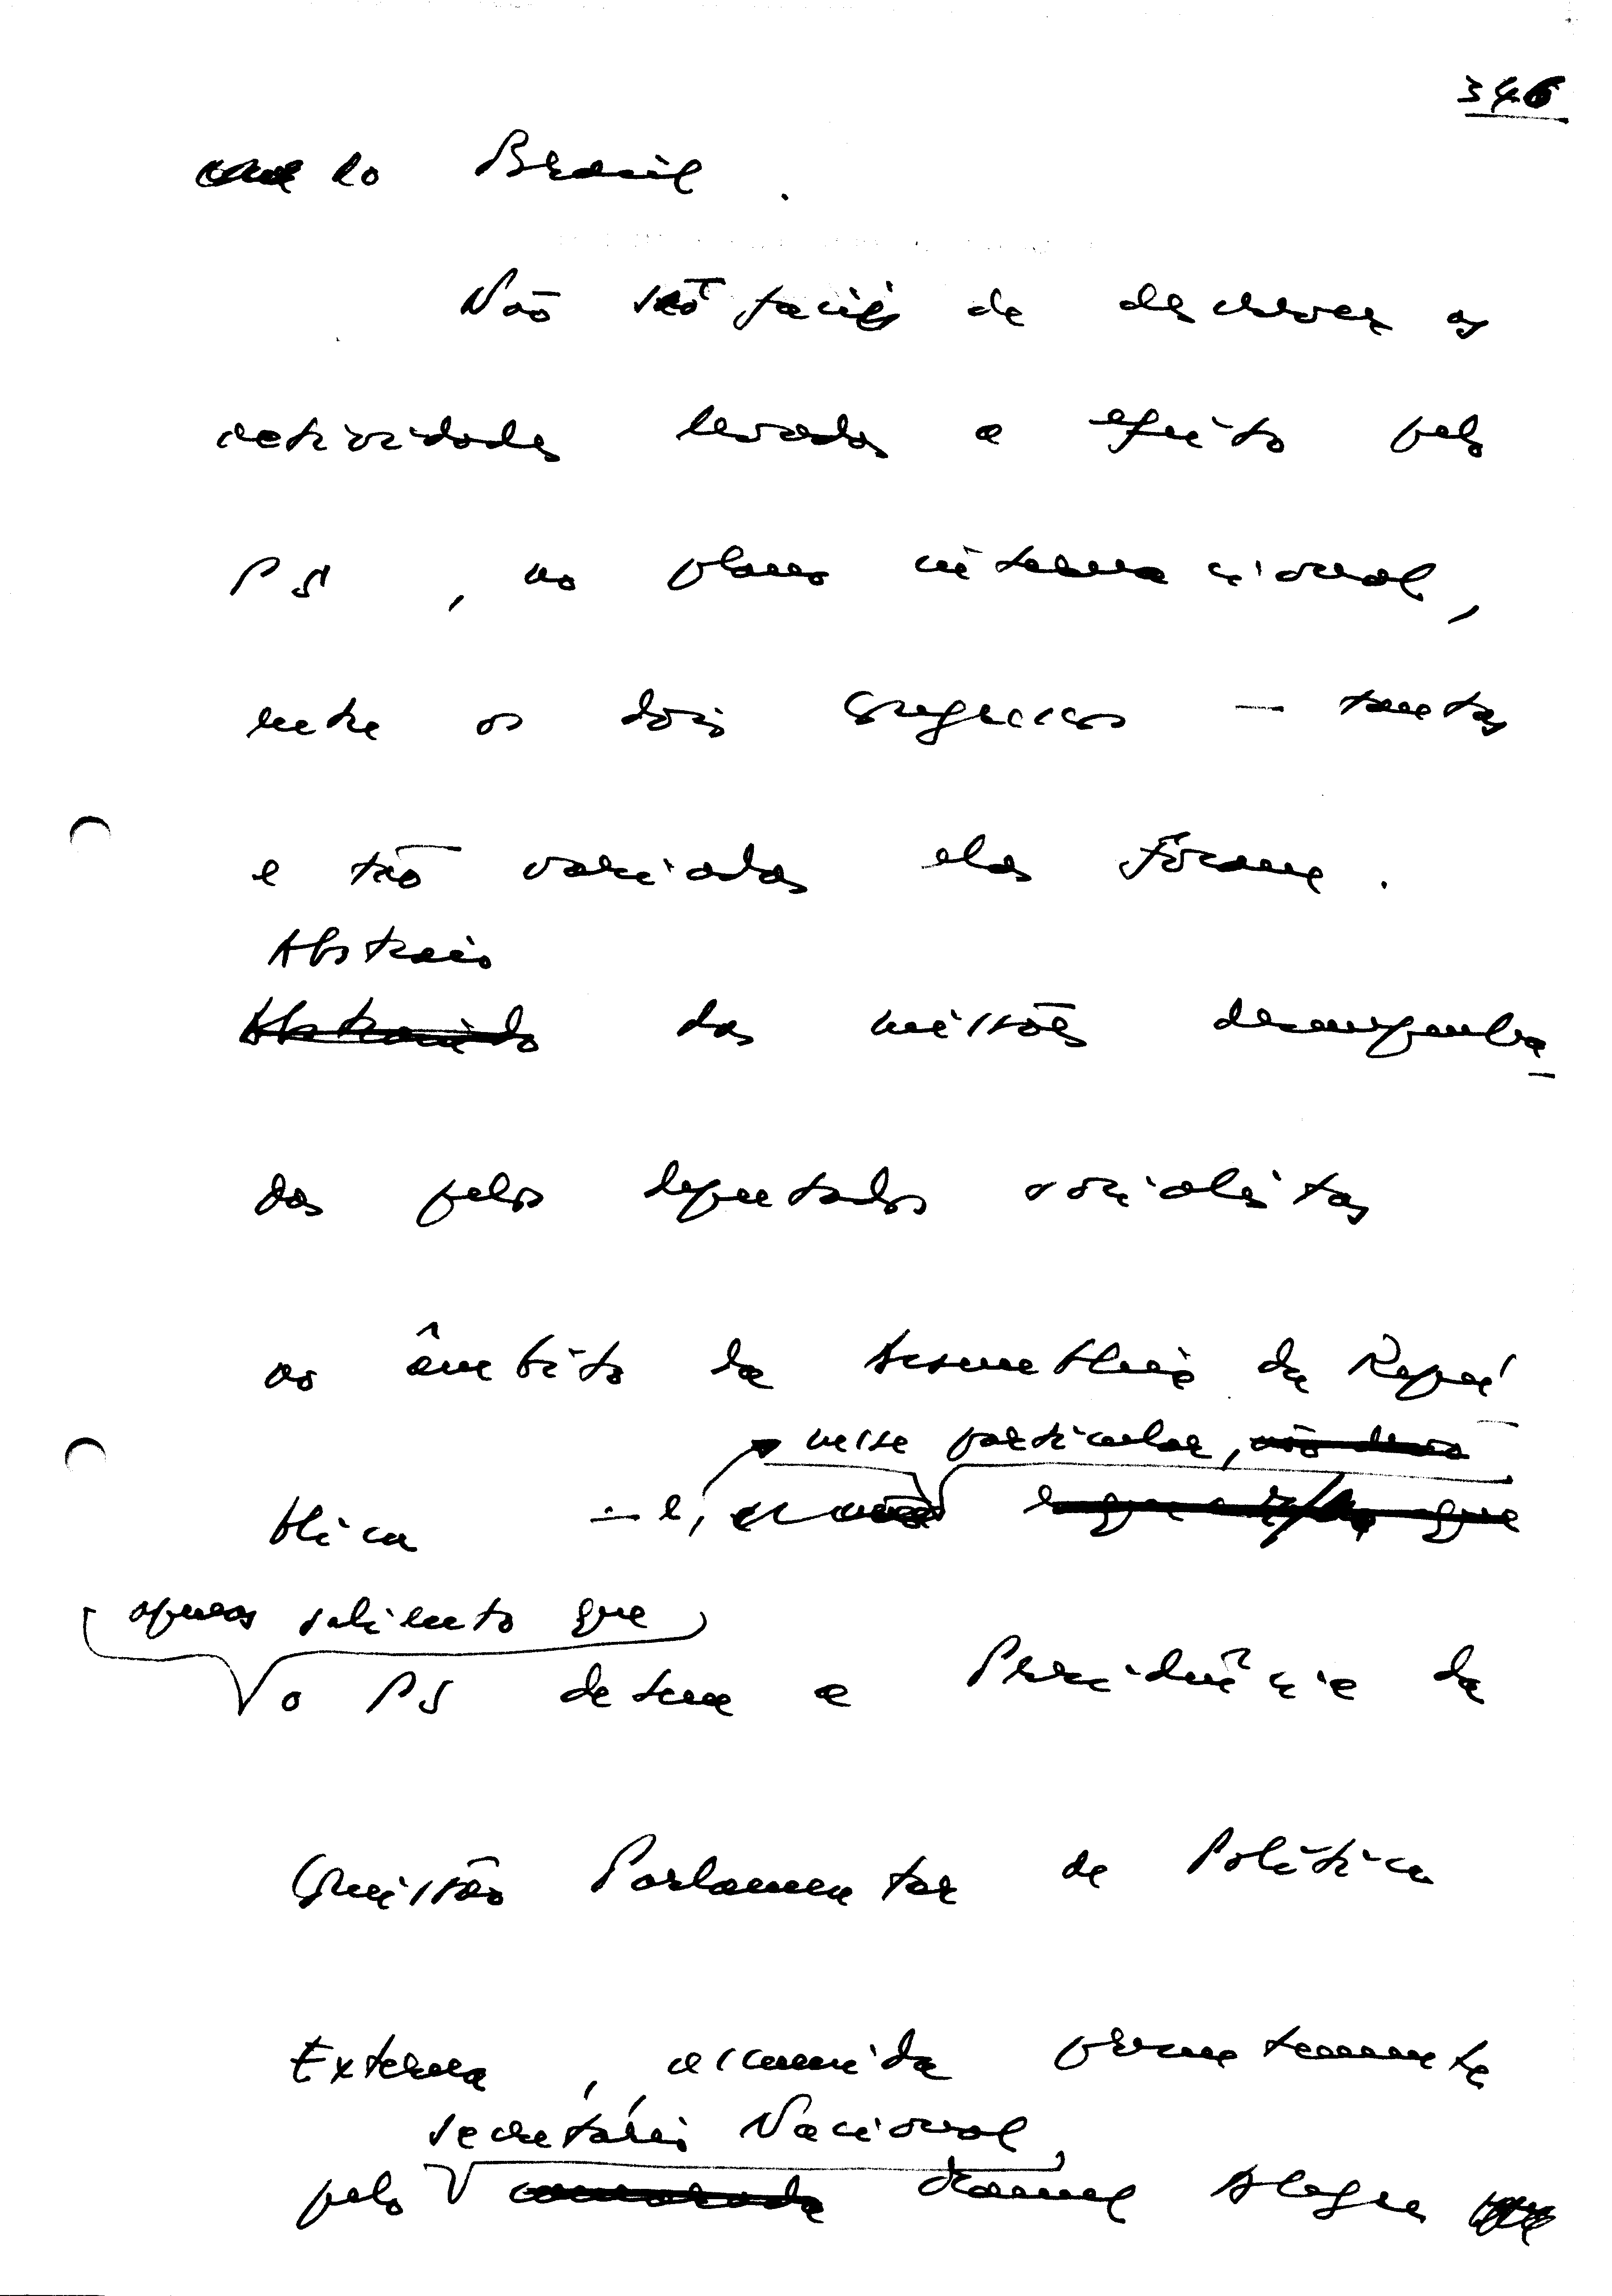 346
do Brasil.
Não são fáceis de descrever as
actividades levadas a efeito pelo
PS, no plano internacional,
entre os dois Congressos — tantas
e tão variadas elas foram.
Abstraio
Abstraindo das missões desempenha-
das pelos deputados socialistas
no âmbito da Assembleia da Repú-
nesse particular, não deixo
blica — e, que
apenas saliento que
o PS detem a Presidência da
Comissão Parlamentar de Política
Externa, assumida
secretário Nacional,
pelo camarada Manuel Alegre